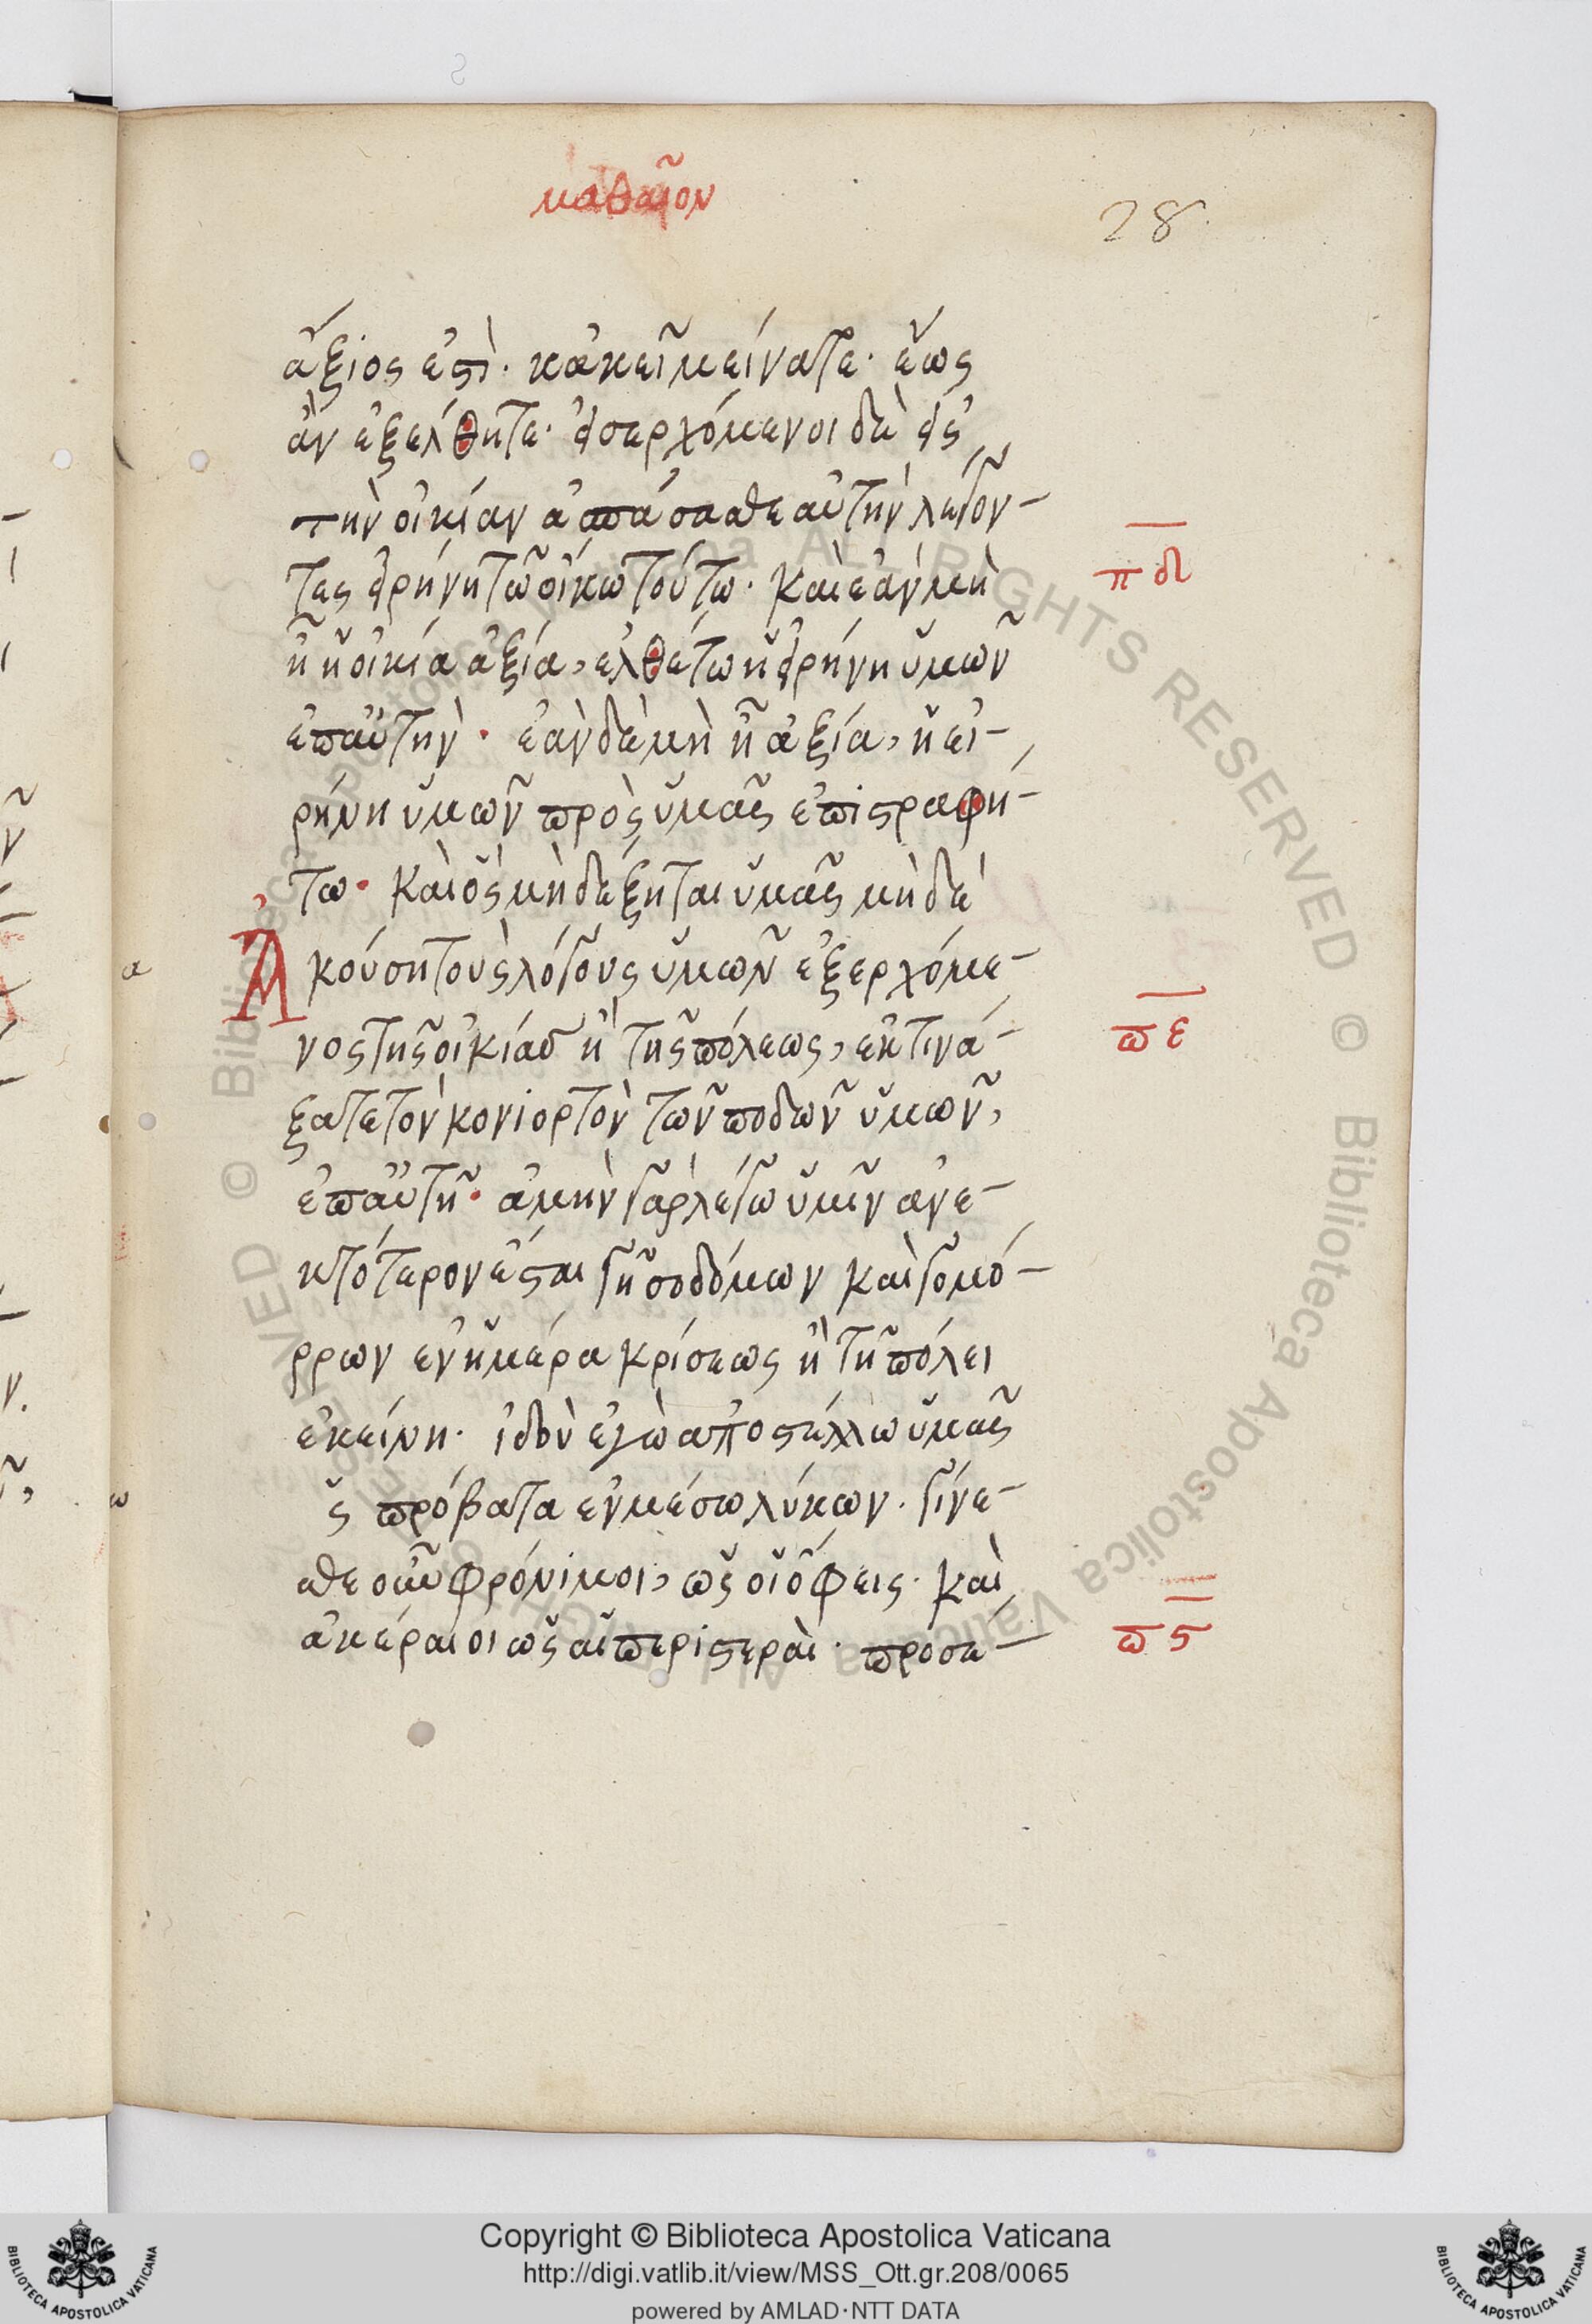 καθαῖον
28.
ἄξιος ἐστὶ. κἀκεῖ μείνατε. ἕως
ἂν ἐξέλθητε. εἰσερχόμενοι δὲ εἰς
τὴν οἰκίαν ἀσπάσασθε αὐτὴν λέγον-
τες εἰρήνη τῶ οἴκω τούτω. καὶ ἐὰν μὴ
πδ
ἦ ἡ οἰκία ἀξία, ἐλθέτω ἡ εἰρήνη ὑμῶν
ἐπ αὐτὴν. ἐὰν δὲ μὴ ἦ ἀξία, ἡ εἰ-
ρήνη ὑμῶν πρὸς ὑμᾶς ἐπιστραφή-
τω. καὶ ὃς μὴ δέξηται ὑμᾶς μὴ δὲ
Ἀκούση τοὺς λόγους ὑμῶν ἐξερχόμε-
νος τῆς οἰκίας ἢ τῆς πόλεως, ἐκτινά-
πε
ξατε τὸν κονιορτὸν τῶν ποδῶν ὑμῶν,
ἐπ αὐτῆ. ἀμὴν γὰρ λέγω ὑμῖν ἀνε-
κτότερον ἔσται γῆ σοδόμων καὶ γομό-
ρρων ἐν ἡμέρα κρίσεως ἢ τῆ πόλει
ἐκείνη. ἰδοὺ ἐγὼ ἀποστέλλω ὑμᾶς
ς πρόβατα ἐν μέσω λύκων. γίνε-
σθε οὖν φρόνιμοι, ὡς οἱ ὄφεις. καὶ
ἀκέραιοι ὡς αἱ περιστεραὶ. προσέ-
πς
α
ω
© Biblioteca Apostolica Vaticana ALL RIGHTS RESERVED
Copyright © Biblioteca Apostolica Vaticana
http://digi.vatlib.it/view/MSS_Ott.gr.208/0065
powered by AMLAD·NTT DATA
BIBLIOTECA APOSTOLICA VATICANA
BIBLIOTECA APOSTOLICA VATICANA